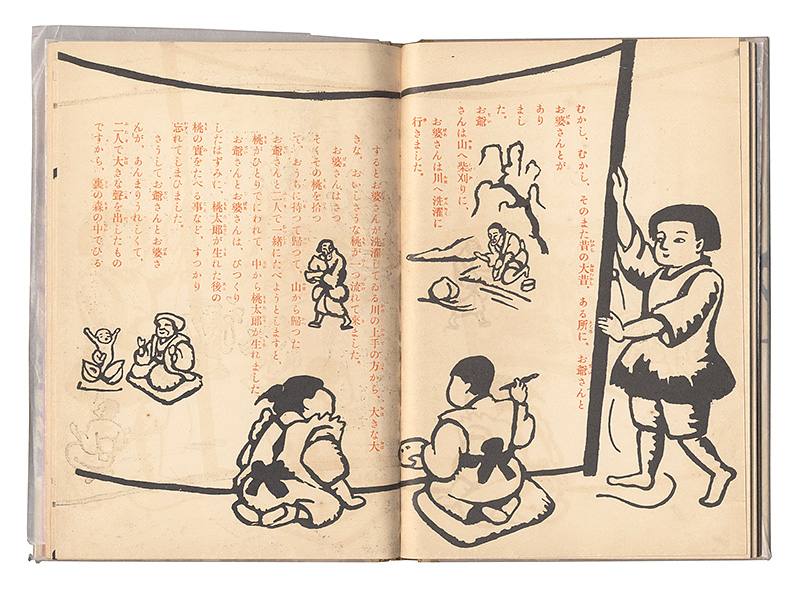 むかし、むかし、そのまた昔の大昔、ある所に、お爺さんと
お婆さんとが
あり
まし
た。
お爺
さんは山へ柴刈りに、
お婆さんは川へ洗濯に
行きました。
するとお婆さんが洗濯してゐる川の上手の方から、大きな大
きな、おいしさうな桃が一つ流れて來ました。
お婆さんはさつ
そくその桃を拾つ
て、おうちに持つて歸つて、山から歸つた
お爺さんと二人で一緒にたべようとしますと、
桃がひとりでにわれて、中から桃太郎が生れました。
お爺さんとお婆さんは、びつくり
したはずみに、桃太郎が生れた後の
桃の實をたべる事など、すつかり
忘れてしまひました。
さうしてお爺さんとお婆さ
んが、あんまりうれしくて、
二人で大きな聲を出したもの
ですから、裏の森の中でひる